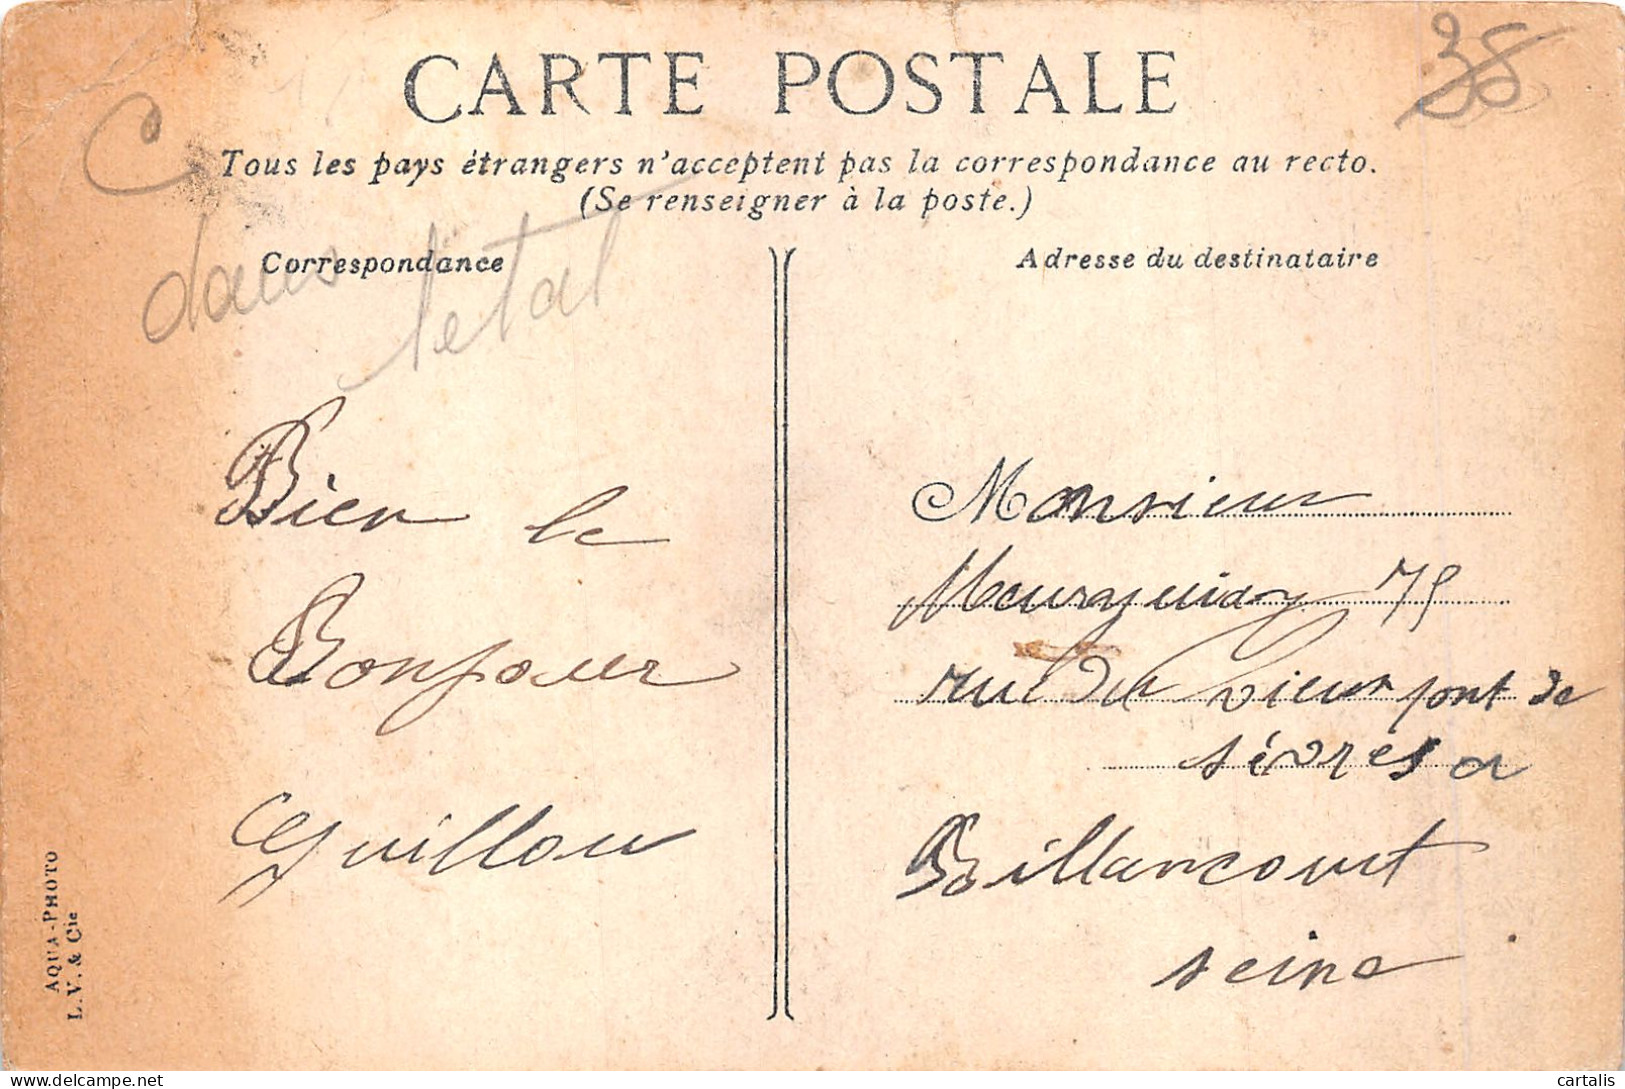 CARTE POSTALE
38
Tous les pays étrangers n'acceptent pas la correspondance au recto.
(Se renseigner à la poste.)
Correspondance
dans letat
Bien le
Bonjour
Guillou
AQUA-PHOTO
L. V. & Cie
Adresse du destinataire
Monsieur
75
rue du Vieux pont de
sèvres a
Billancourt
seine
cartalis